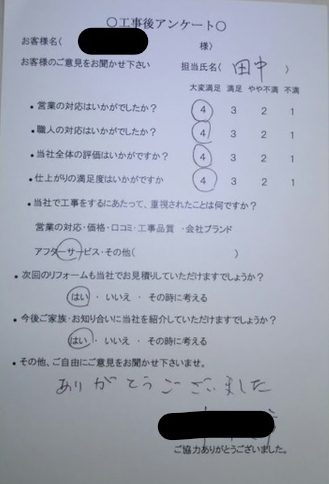 ○工事後アンケート○
お客様名( 様)
お客様のご意見をお聞かせ下さい 担当氏名( 田中 )
大変満足 満足 やや不満 不満
・営業の対応はいかがでしたか? 4 3 2 1
・職人の対応はいかがでしたか? 4 3 2 1
・当社全体の評価はいかがですか? 4 3 2 1
・仕上がりの満足度はいかがですか 4 3 2 1
・当社で工事をするにあたって、重視されたことは何ですか?
営業の対応・価格・口コミ・工事品質 ・会社ブランド
アフターサービス・その他( )
・次回のリフォームも当社でお見積していただけますでしょうか?
はい ・ いいえ ・ その時に考える
・今後ご家族・お知り合いに当社を紹介していただけますでしょうか?
はい ・ いいえ ・ その時に考える
・その他、ご自由にご意見をお聞かせ下さいませ。
ありがとうございました
ご協力ありがとうございました。